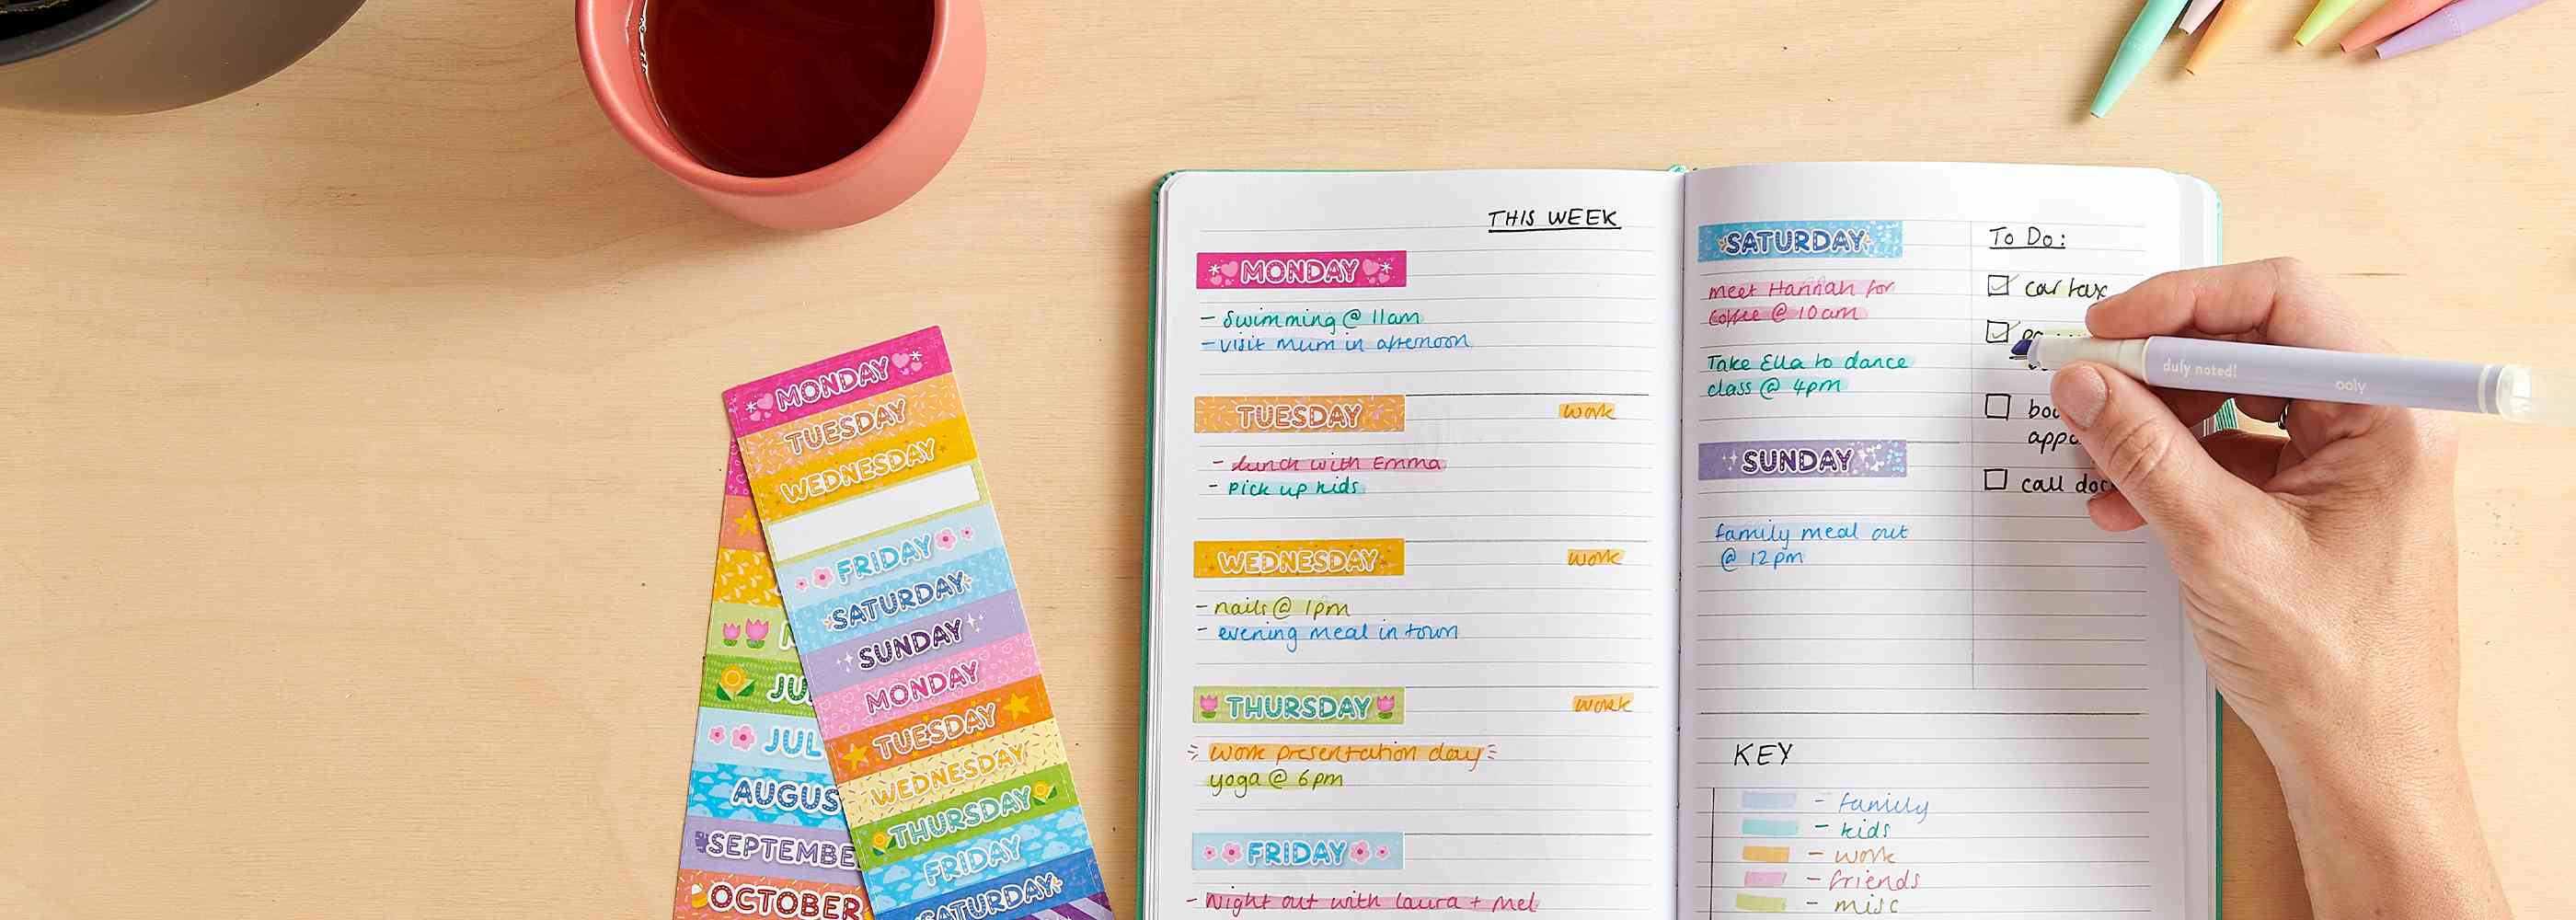 MONDAY
TUESDAY
WEDNESDAY
FRIDAY
SATURDAY
SUNDAY
MONDAY
TUESDAY
WEDNESDAY
THURSDAY
FRIDAY
SATURDAY
JUL
AUGUS
SEPTEMBE
OCTOBER
THIS WEEK
MONDAY
- Swimming @ 11am
- visit mum in afternoon
TUESDAY work
- lunch with Emma
- pick up kids
WEDNESDAY work
- nails @ 1pm
- evening meal in town
THURSDAY work
work presentation day
yoga @ 6pm
FRIDAY
- Night out with Laura + Mel
SATURDAY
meet Hannah for
coffee @ 10am
Take Ella to dance
class @ 4pm
SUNDAY
family meal out
@ 12pm
To Do:
car tax
call doc
KEY
- family
- kids
- work
- friends
- misc
duly noted! ooly